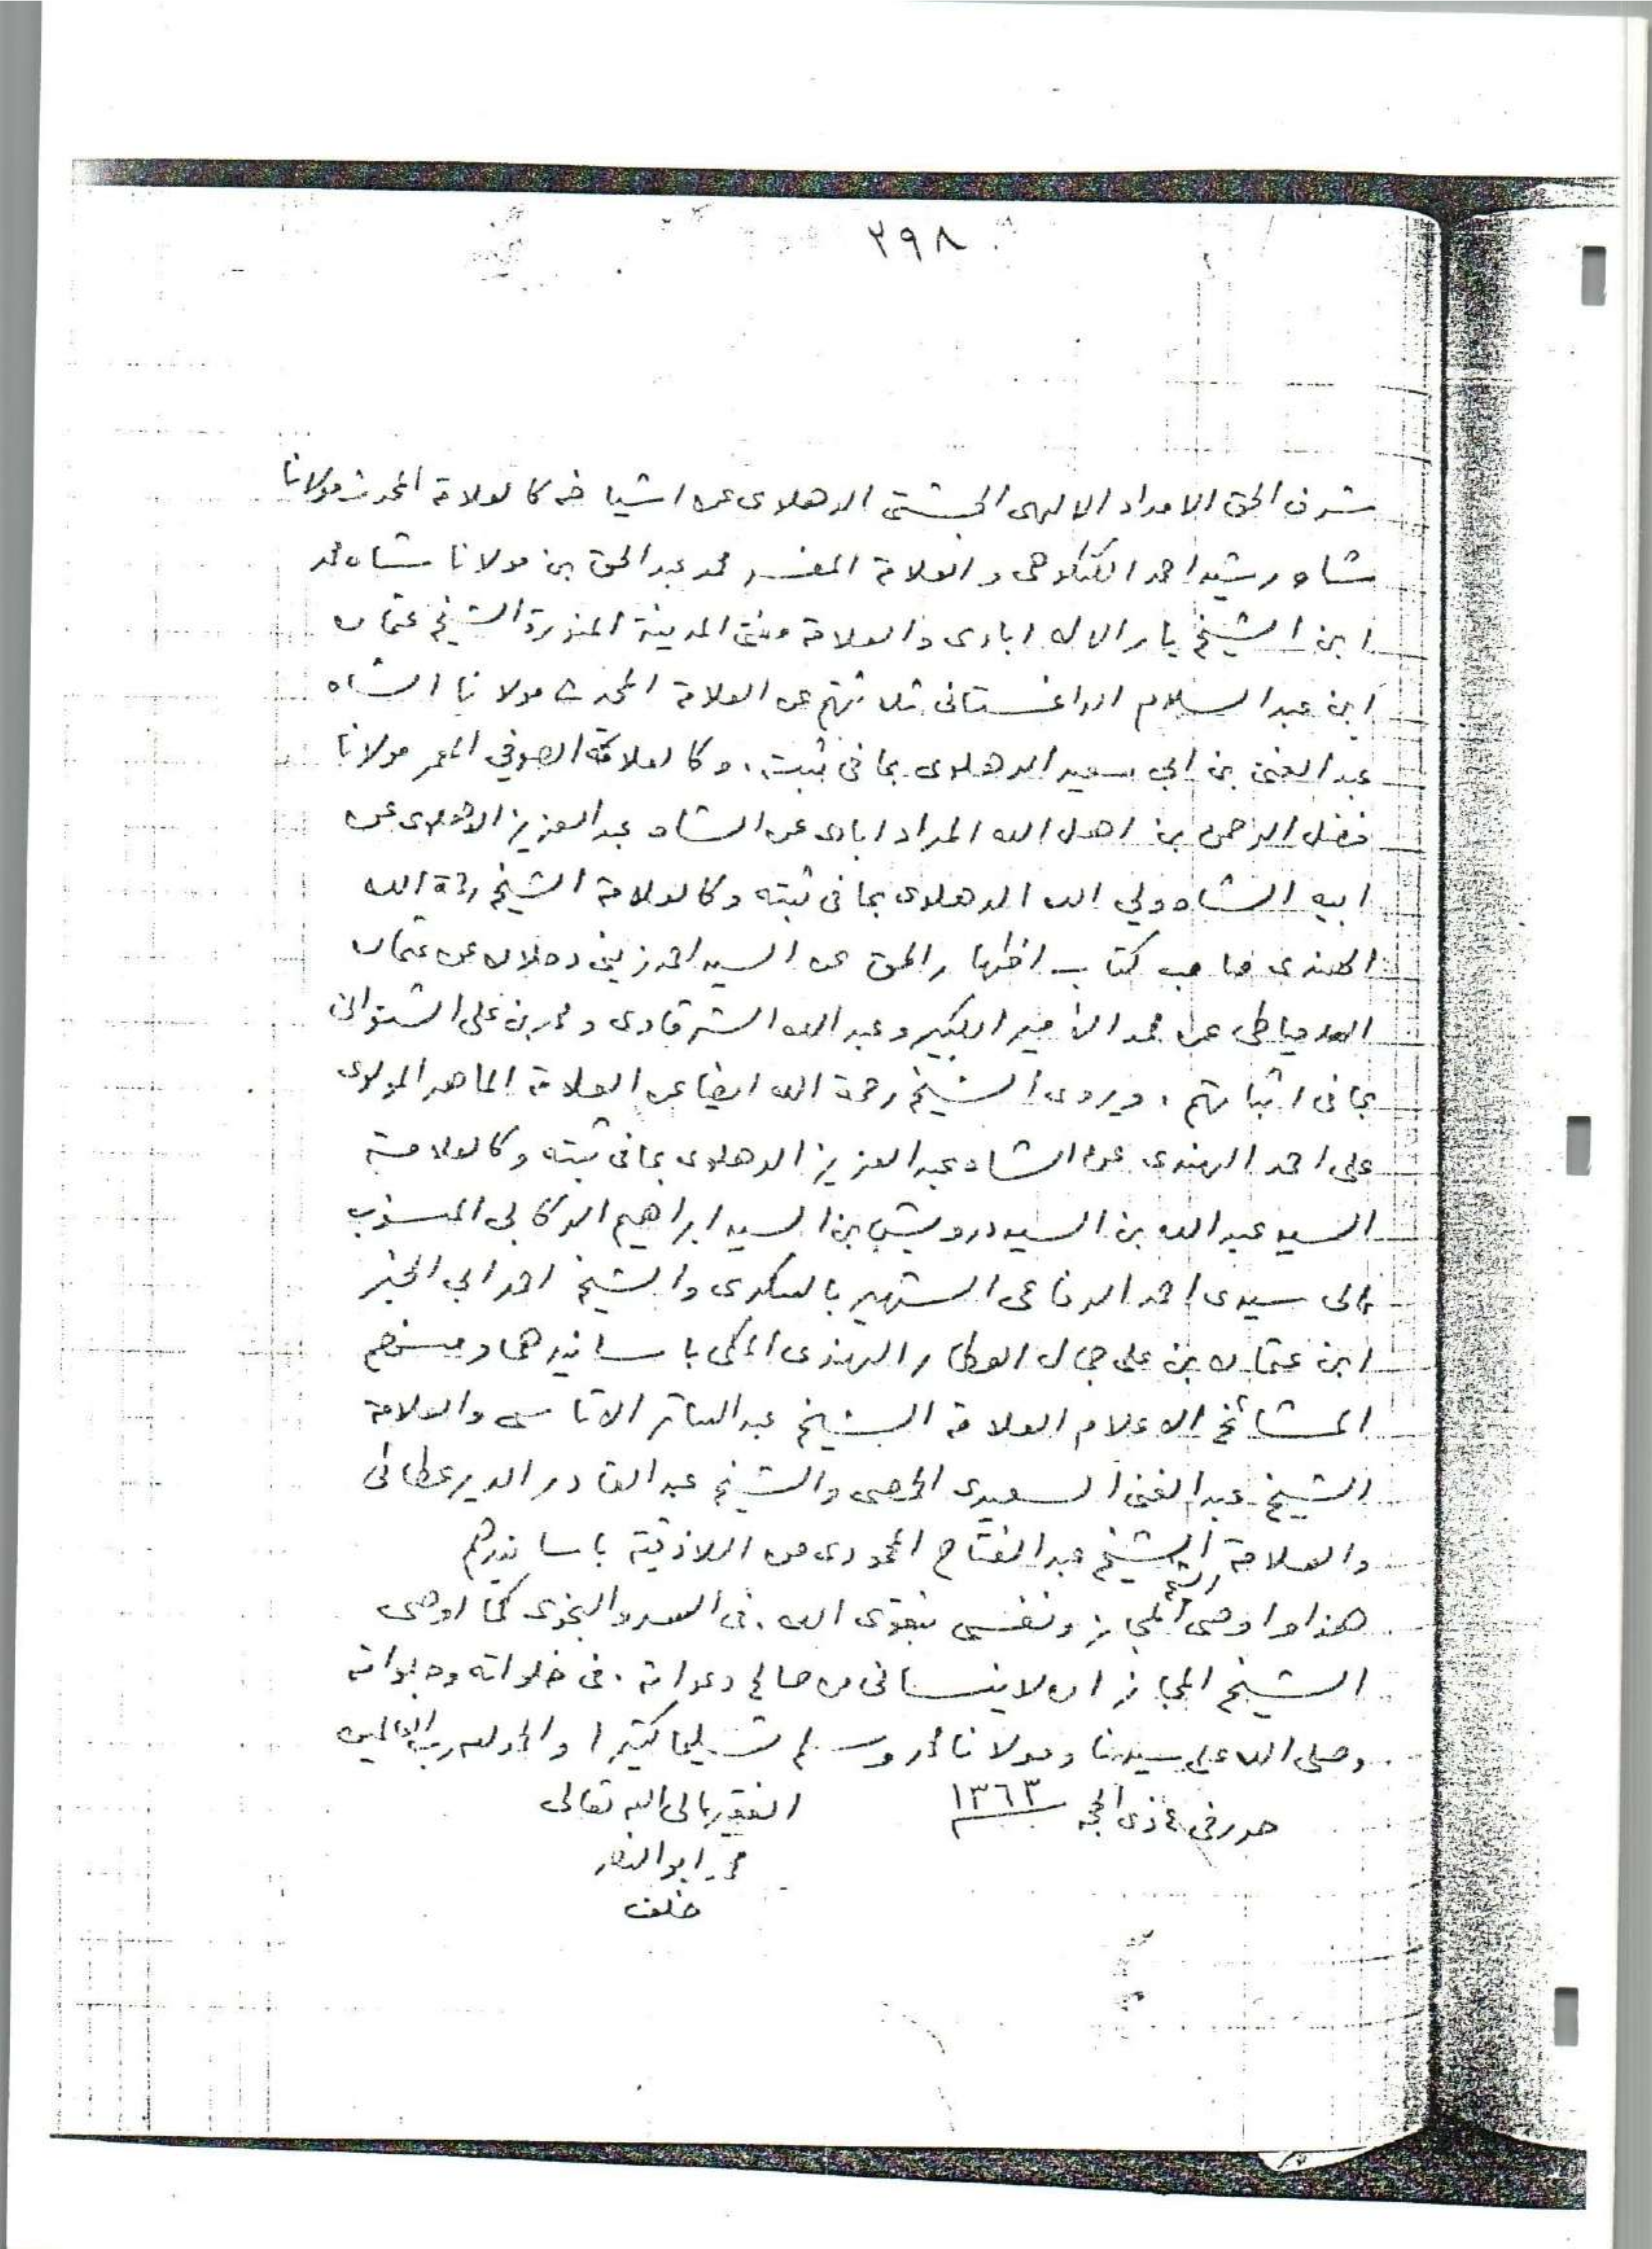 ٢٩٨
شرف الحق الامداد الالهى الجشتى الدهلوى عن اشياخه كالعلامة المحدث مولانا
شاه رشيد احمد الكنكوهى والعلامة المفسر محمد عبد الحق بن مولانا شاه محمد
ابن الشيخ يار الاله ابادى والعلامة مفتى المدينة المنورة الشيخ عثمان
ابن عبد السلام الداغستانى ثلاثتهم عن العلامة المحدث مولانا الشاه
عبد الغنى بن ابي سعيد الدهلوى بما فى ثبته. وكالعلامة الصوفي المعمر مولانا
فضل الرحمن بن اهل الله المراد ابادى عن الشاه عبد العزيز الدهلوى عن
ابيه الشاه ولي الله الدهلوى بما فى ثبته وكالعلامة الشيخ رحمة الله
الهندى صاحب كتاب اظهار الحق عن السيد احمد زينى دحلان عن عثمان
الدمياطى عن محمد الأمير الكبير وعبد الله الشرقاوى ومحمد بن على الشنوانى
بما فى اثباتهم. ويروى الشيخ رحمة الله ايضا عن العلامة الماهر المولوى
على احمد الهندى عن الشاه عبد العزيز الدهلوى بما فى ثبته وكالعلامة
السيد عبد الله بن السيد درويش بن السيد ابراهيم الركابى المنسوب
الى سيدى احمد الرفاعى الشهير بالسكرى والشيخ احمد ابى الخير
ابن عثمان بن على جمال العطار الهندى المكى باسانيدهما ومنهم
المشائخ الاعلام العلامة الشيخ عبد الساتر الاتاسى والعلامة
الشيخ عبد الغنى السعيدى الحمصى والشيخ عبد القادر الديرعطانى
والعلامة الشيخ عبد الفتاح المحمودى من اللاذقية باسانيدهم
هذا واوصى الشيخ المجاز ونفسى بتقوى الله. فى السر والنجوى كما اوصى
الشيخ المجاز ان لا ينسانى من صالح دعواته. فى خلواته وجلواته
وصلى الله على سيدنا ومولانا محمد وسلم تسليما كثيرا والحمد لله رب العالمين
حرر فى ٤ ذى الحجه ١٣٦٣
الفقير الى الله تعالى
محمد ابو النصر
خلف